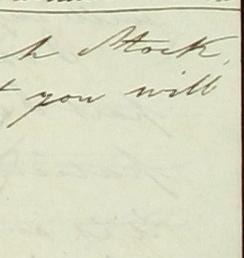 h Stock,
t you will